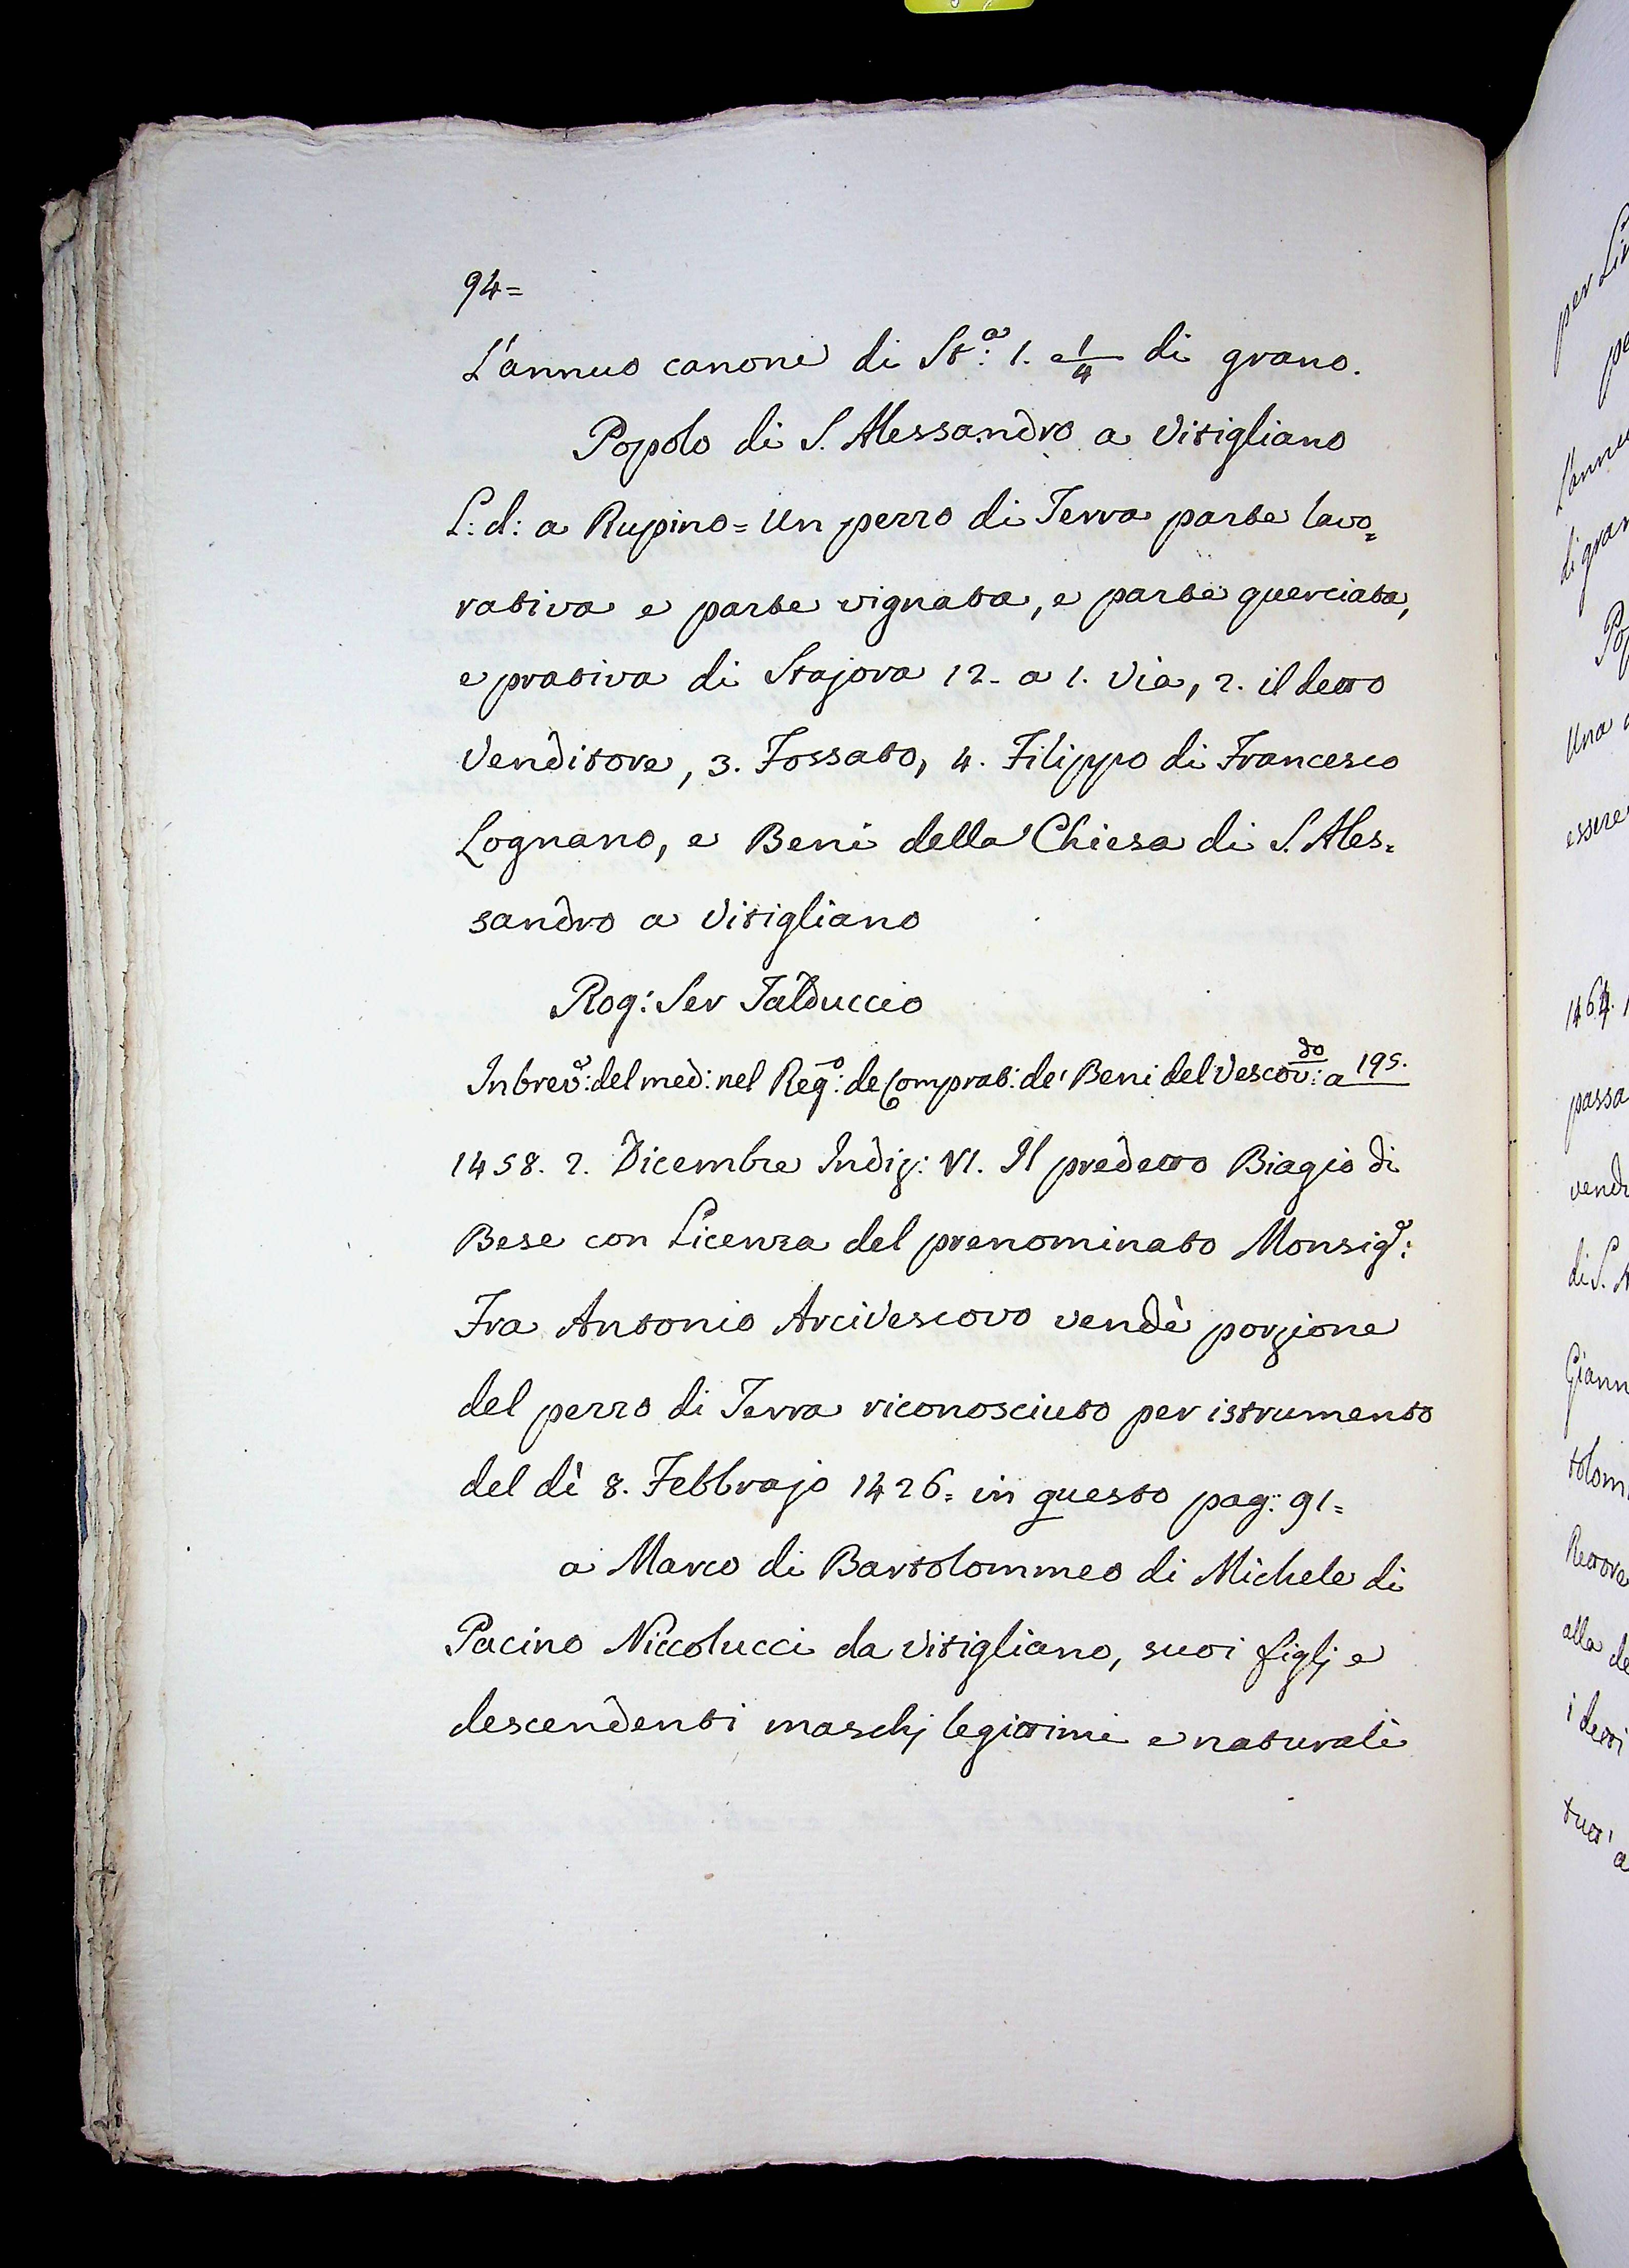 94=
L'annuo canone di St.ª: 1. e 1/4 di grano.
Popolo di S. Alessandro a Vitigliano
L: d: a Rupino = Un pezzo di Terra parte lavo=
rativa e parte vignata, e parte querciata,
e prativa di Stajora 12. a 1. Via, 2. il detto
Venditore, 3. Fossato, 4. Filippo di Francesco
Lognano, e Beni della Chiesa di S. Ales=
sandro a Vitigliano
Rog: Ser Jalduccio
Inbrev: del med: nel Reg.º: de Comprat: de' Beni del Vescov:do a 195.
1458. 2. Dicembre Indiz: VI. Il predetto Biagio di
Bese con Licenza del prenominato Monsig.r:
Fra Antonio Arcivescovo vendè porzione
del pezzo di Terra riconosciuto per istrumento
del dì 8. Febbrajo 1426. in questo pag: 91=
a Marco di Bartolommeo di Michele di
Pacino Niccolucci da Vitigliano, suoi figlj e
descendenti maschj legittimi e naturali
per
L'annu
di gran
Una
essere
1464.
passa
vend
di S.
Giann
tolom
Rettore
alla de
i detti
tutt' a